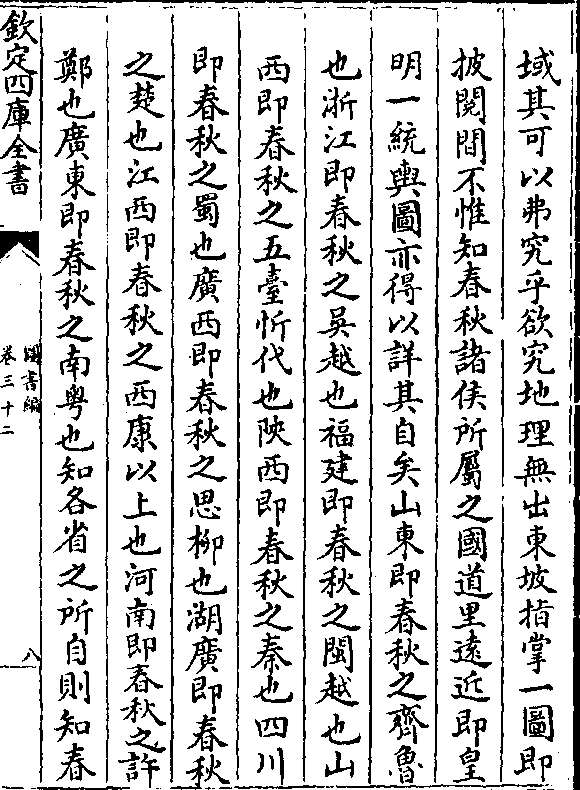 域其可以弗究乎欲究地理無出東坡指掌一圖即
披閱間不惟知春秋諸侯所屬之國道里遠近即皇
明一統輿圖亦得以詳其自矣山東即春秋之齊魯
也浙江即春秋之吳越也福建即春秋之閩越也山
西即春秋之五臺忻代也陜西即春秋之秦也四川
即春秋之蜀也廣西即春秋之思柳也湖廣即春秋
之楚也江西即春秋之西康以上也河南即春秋之許
鄭也廣東即春秋之南粤也知各省之所自則知春
欽定四庫全書
圖書編
卷三十二
八